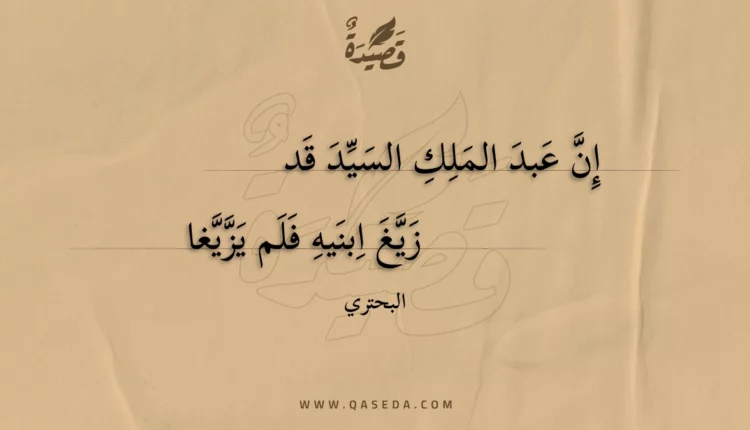 قَصِيدَةٌ
إِنَّ عَبدَ المَلِكِ السَيِّدَ قَد
زَيَّغَ اِبنَيهِ فَلَم يَزَّيَّغا
البحتري
WWW.QASEDA.COM